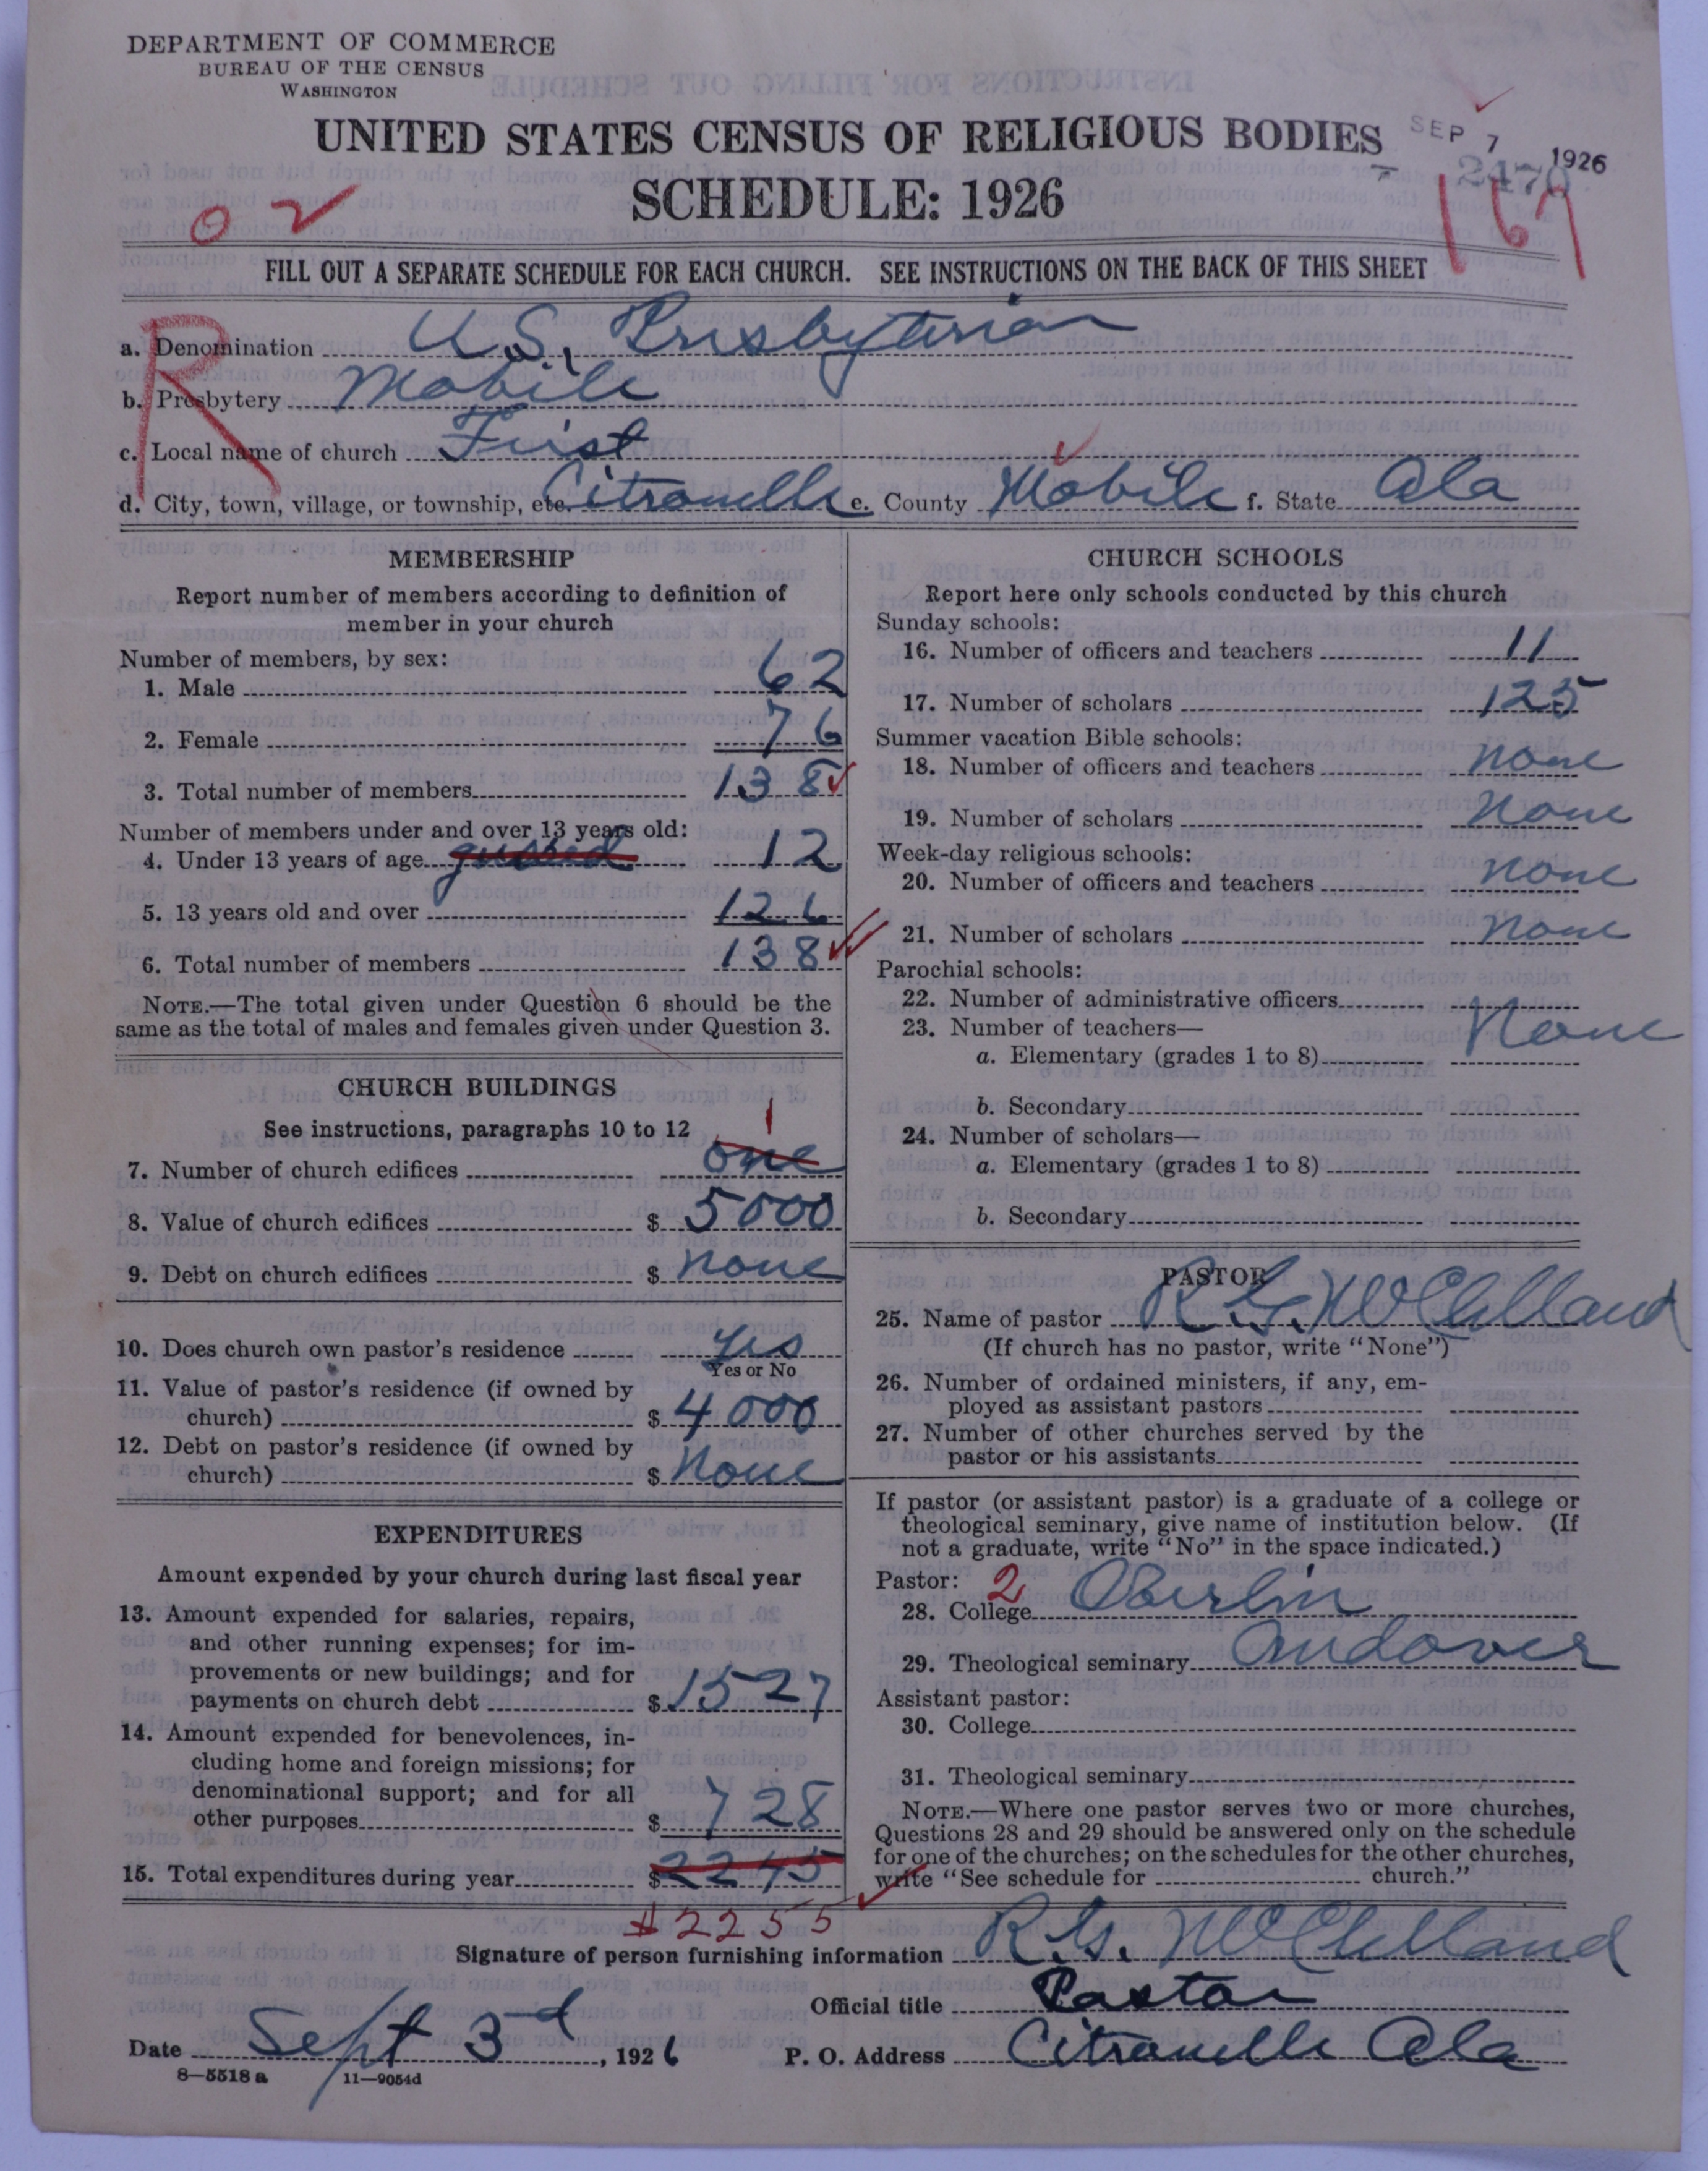 DEPARTMENT OF COMMERCE
BUREAU OF THE CENSUS
WASHINGTON
UNITED STATES CENSUS OF RELIGIOUS BODIES
SEP 7 1926
2470
SCHEDULE: 1926
167
FILL OUT A SEPARATE SCHEDULE FOR EACH CHURCH. SEE INSTRUCTIONS ON THE BACK OF THIS SHEET
R
a. Denomination U.S. Presbyterian
b. Presbytery Mobile
c. Local name of church First
d. City, town, village, or township, etc. Citronelle e. County Mobile f. State Ala
MEMBERSHIP
Report number of members according to definition of
member in your church
Number of members, by sex:
1. Male 62
2. Female 76
3. Total number of members 138
Number of members under and over 13 years old:
4. Under 13 years of age 12
5. 13 years old and over 126
6. Total number of members 138
NOTE.—The total given under Question 6 should be the
same as the total of males and females given under Question 3.
CHURCH BUILDINGS
See instructions, paragraphs 10 to 12
1
7. Number of church edifices one
8. Value of church edifices $ 5000
9. Debt on church edifices $ none
10. Does church own pastor's residence yes
Yes or No
11. Value of pastor's residence (if owned by
church) $ 4000
12. Debt on pastor's residence (if owned by
church) $ None
EXPENDITURES
Amount expended by your church during last fiscal year
13. Amount expended for salaries, repairs,
and other running expenses; for im-
provements or new buildings; and for
payments on church debt $ 1527
14. Amount expended for benevolences, in-
cluding home and foreign missions; for
denominational support; and for all
other purposes $ 728
15. Total expenditures during year $ 2245
$2255
CHURCH SCHOOLS
Report here only schools conducted by this church
Sunday schools:
16. Number of officers and teachers 11
17. Number of scholars 125
Summer vacation Bible schools:
18. Number of officers and teachers none
19. Number of scholars None
Week-day religious schools:
20. Number of officers and teachers none
21. Number of scholars none
Parochial schools:
22. Number of administrative officers
23. Number of teachers— None
a. Elementary (grades 1 to 8)
b. Secondary
24. Number of scholars—
a. Elementary (grades 1 to 8)
b. Secondary
PASTOR
25. Name of pastor R. G. McClelland
(If church has no pastor, write "None")
26. Number of ordained ministers, if any, em-
ployed as assistant pastors
27. Number of other churches served by the
pastor or his assistants
If pastor (or assistant pastor) is a graduate of a college or
theological seminary, give name of institution below. (If
not a graduate, write "No" in the space indicated.)
Pastor: 2
28. College Oberlin
29. Theological seminary Andover
Assistant pastor:
30. College
31. Theological seminary
NOTE.—Where one pastor serves two or more churches,
Questions 28 and 29 should be answered only on the schedule
for one of the churches; on the schedules for the other churches,
write "See schedule for church."
Signature of person furnishing information R. G. McClelland
Official title Pastor
Date Sept 3d, 1926 P. O. Address Citronelle Ala
8—5518 a 11—9054d